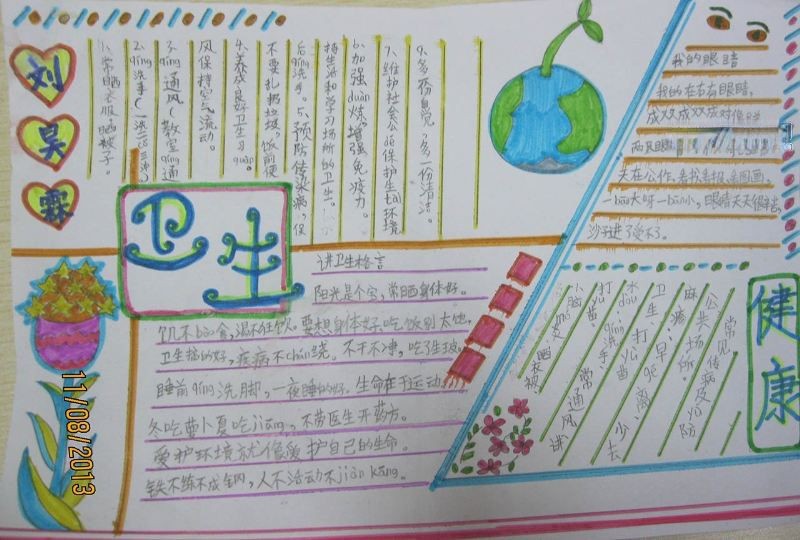 刘
昊
霖
1、常晒衣服,晒被子。
2、qíng洗手(一洗二
3、qíng通风(教室qíng通
风保持空气流动。
4、养成良好卫生习guàn。
不要扎扔垃圾,饭前便
后qíng洗手。5、预防传染病,保
持生活和学习场所的卫生。
6、加强duàn炼,增强免疫力。
7、维护社会公品保护生tài环境
9、多一份自觉,多一份清洁。
卫生
讲卫生格言
阳光是个宝,常晒身体好。
饥不bào食,渴不狂饮。要想身体好吃饭别太饱
卫生搞的好,疾病不chán绕。不干不净,吃了生病。
睡前qíng洗脚,一夜睡的好。生命在于运动
冬吃萝卜夏吃jiāng,不劳医生开药方。
爱护环境就像爱护自己的生命。
铁不练不成钢,人不活动不jiàn kāng。
我的眼睛
我的左右右眼睛,
成双成双成对
两只眼
天在公作,看书看报,看图画,
一bāo大呀一bāo小,眼睛天天很辛苦,
沙子进了受不了。
常见传病及冶防
公共场所。
麻
卫生打早
水dòu
打yù苗
qíng洗手、常通风讲
晒衣被
离、少去
健康
11/08/2013